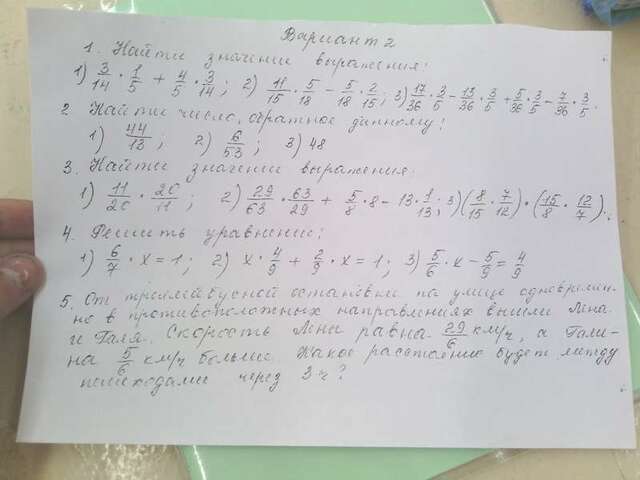 Вариант 2
1. Найти значение выражения:
1) 3/14 · 1/5 + 4/5 · 3/14; 2) 11/15 · 5/18 − 5/18 · 2/15; 3) 17/36 · 3/5 − 13/36 · 3/5 + 5/36 · 3/5 − 7/36 · 3/5.
2 Найти число, обратное данному:
1) 44/13; 2) 6/53; 3) 48
3. Найти значение выражения:
1) 11/20 · 20/11; 2) 29/63 · 63/29 + 5/8 · 8 − 13 · 1/13; 3) (8/15 · 7/12) · (15/8 · 12/7).
4. Решить уравнение:
1) 6/7 · x = 1; 2) x · 4/9 + 2/9 · x = 1; 3) 5/6 · x − 5/9 = 4/9
5. От троллейбусной остановки по улице одновремен-
но в противоположных направлениях вышли Лена
и Галя. Скорость Лены равна 29/6 км/ч, а Гали-
на 5/6 км/ч больше. Какое расстояние будет между
пешеходами через 3 ч?